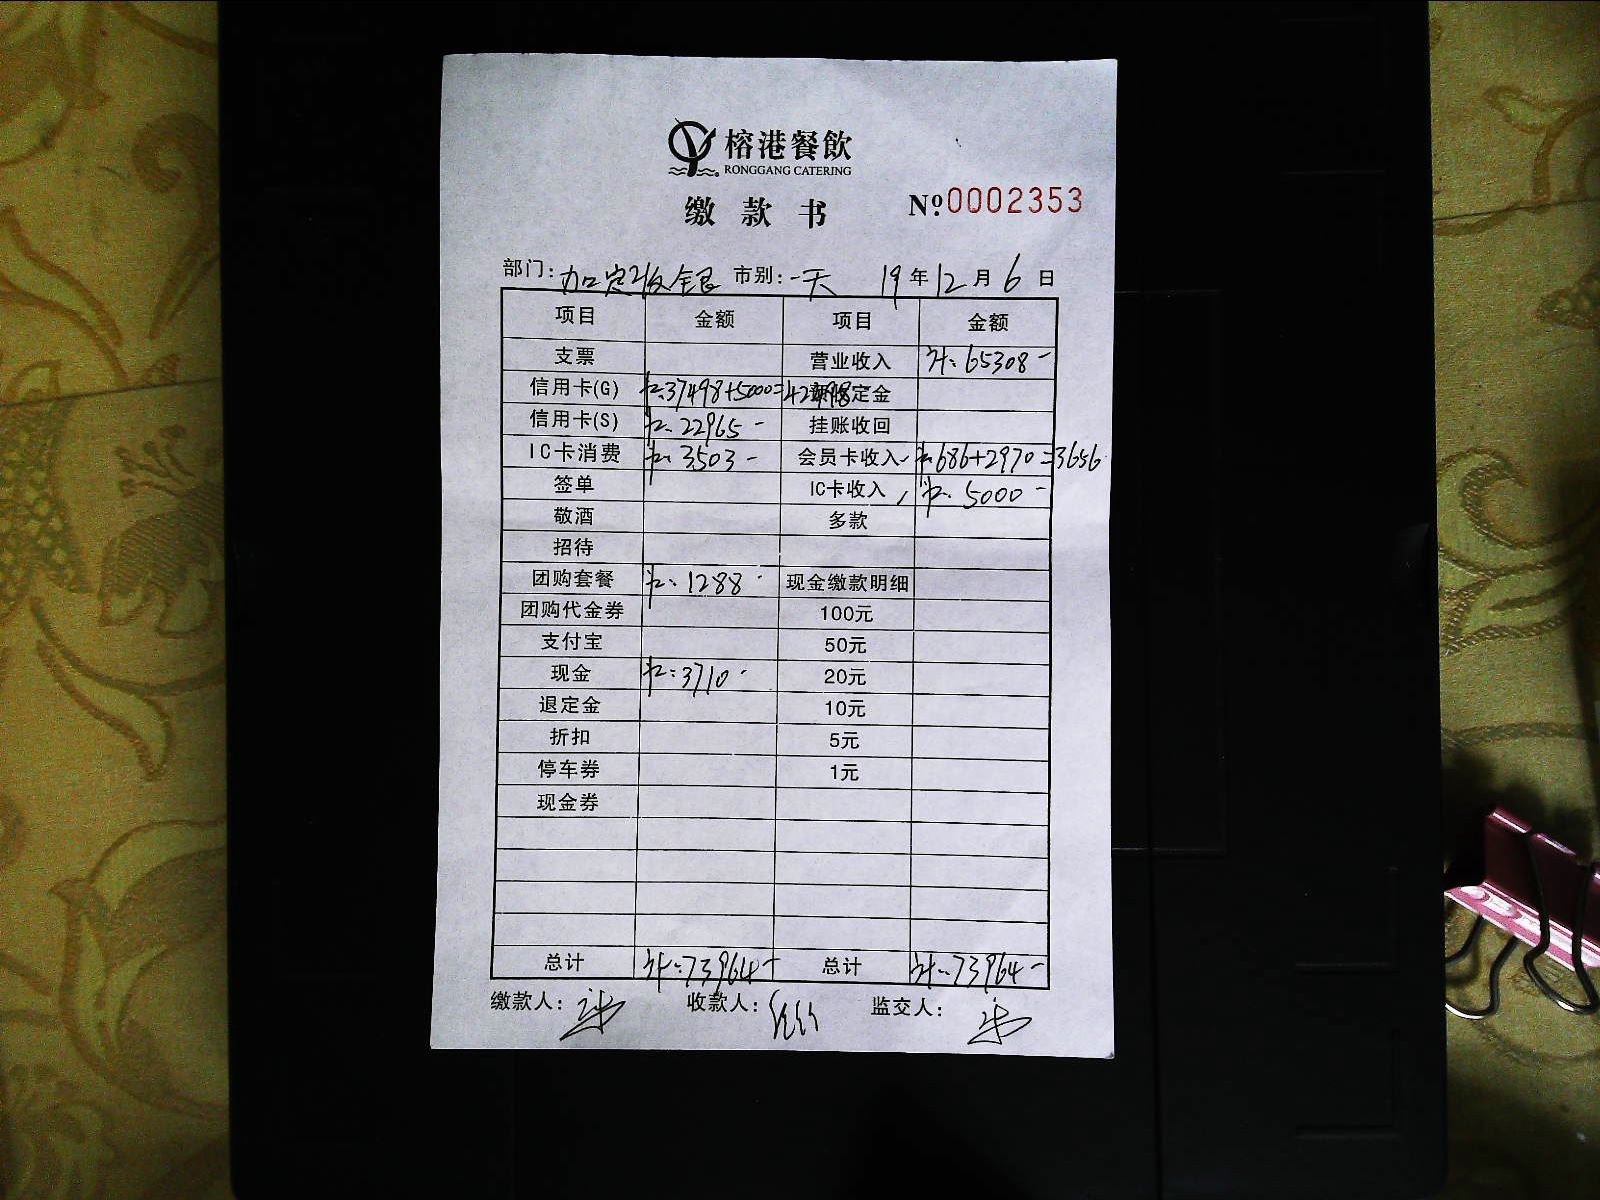 榕港餐飲
RONGGANG CATERING
缴款书 Nº:0002353
部门: 加定收银 市别: 一天 19年12月6日
项目 金额 项目 金额
支票 营业收入 65308-
信用卡(G) 37498+5000=42498 定金
信用卡(S) 22965- 挂账收回
IC卡消费 3503- 会员卡收入 686+2970=3656
签单 IC卡收入 5000-
敬酒 多款
招待
团购套餐 1288- 现金缴款明细
团购代金券 100元
支付宝 50元
现金 3710- 20元
退定金 10元
折扣 5元
停车券 1元
现金券
总计 73964- 总计 73964-
缴款人: 收款人: 监交人: